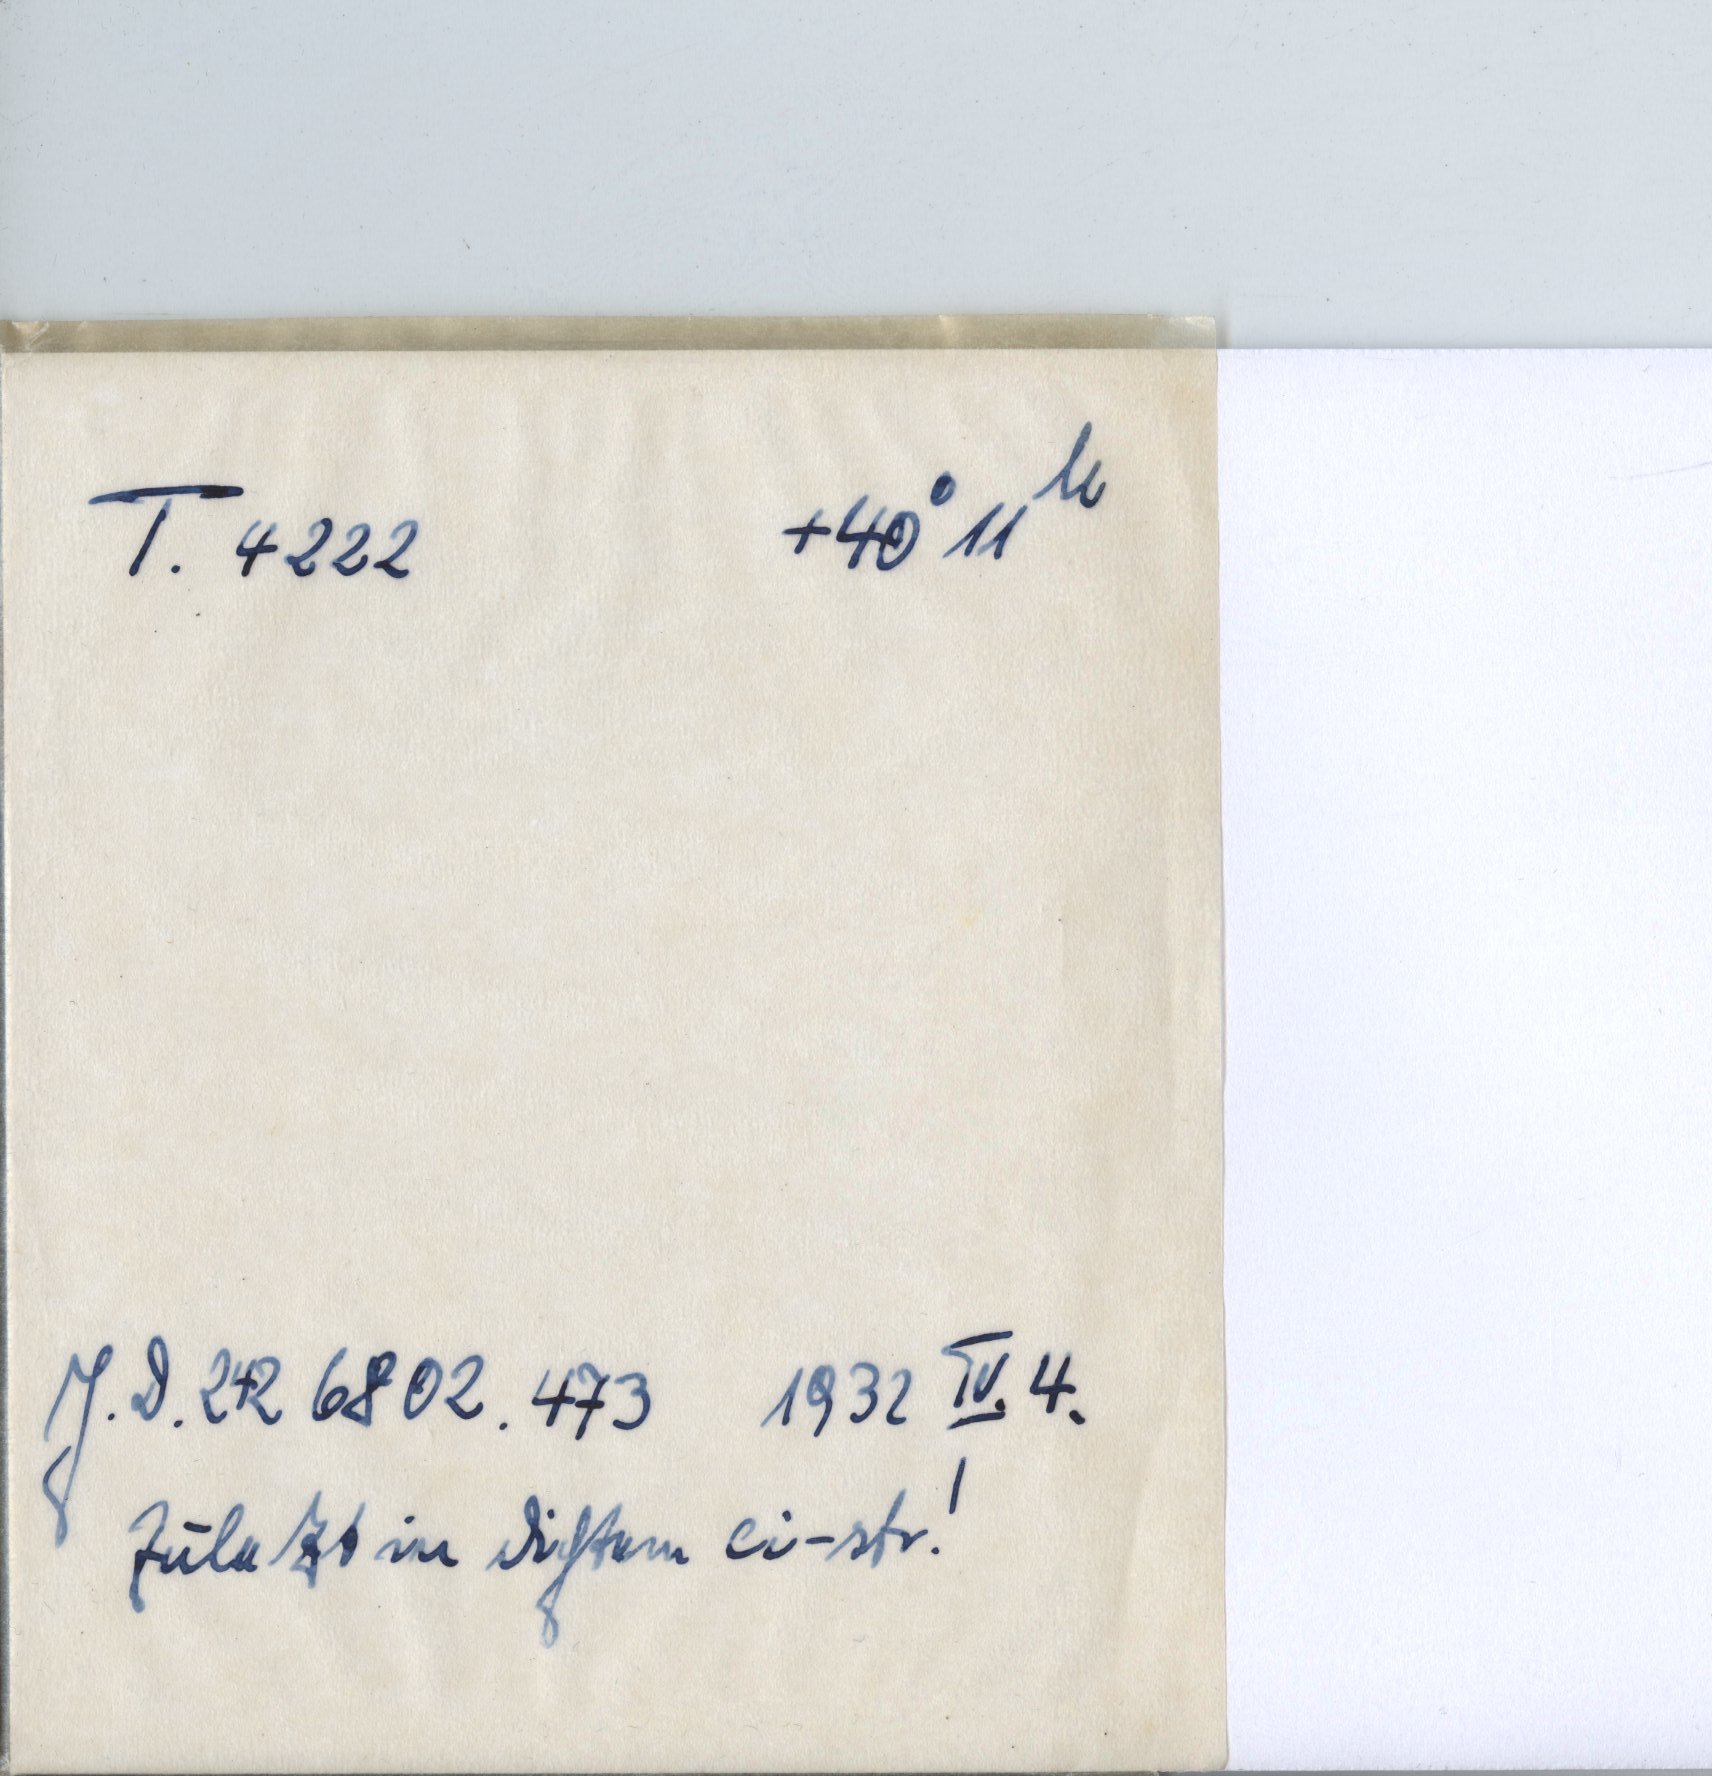 T. 4222 +40° 11h
J.D. 242 6802.473 1932 IV. 4.
Zuletzt in dichtem Ci-str.!